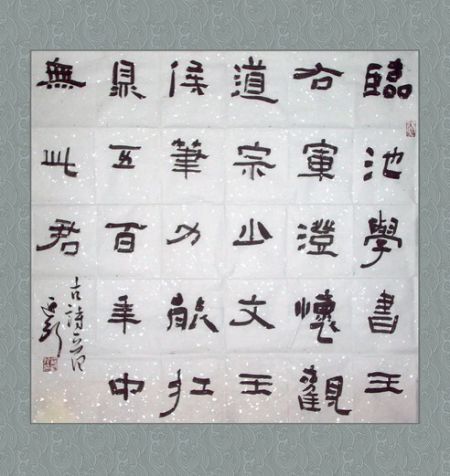 臨池學書王
右軍澄懷觀
道宗少文王
侯筆力能扛
鼎五百年中
無此君
古詩